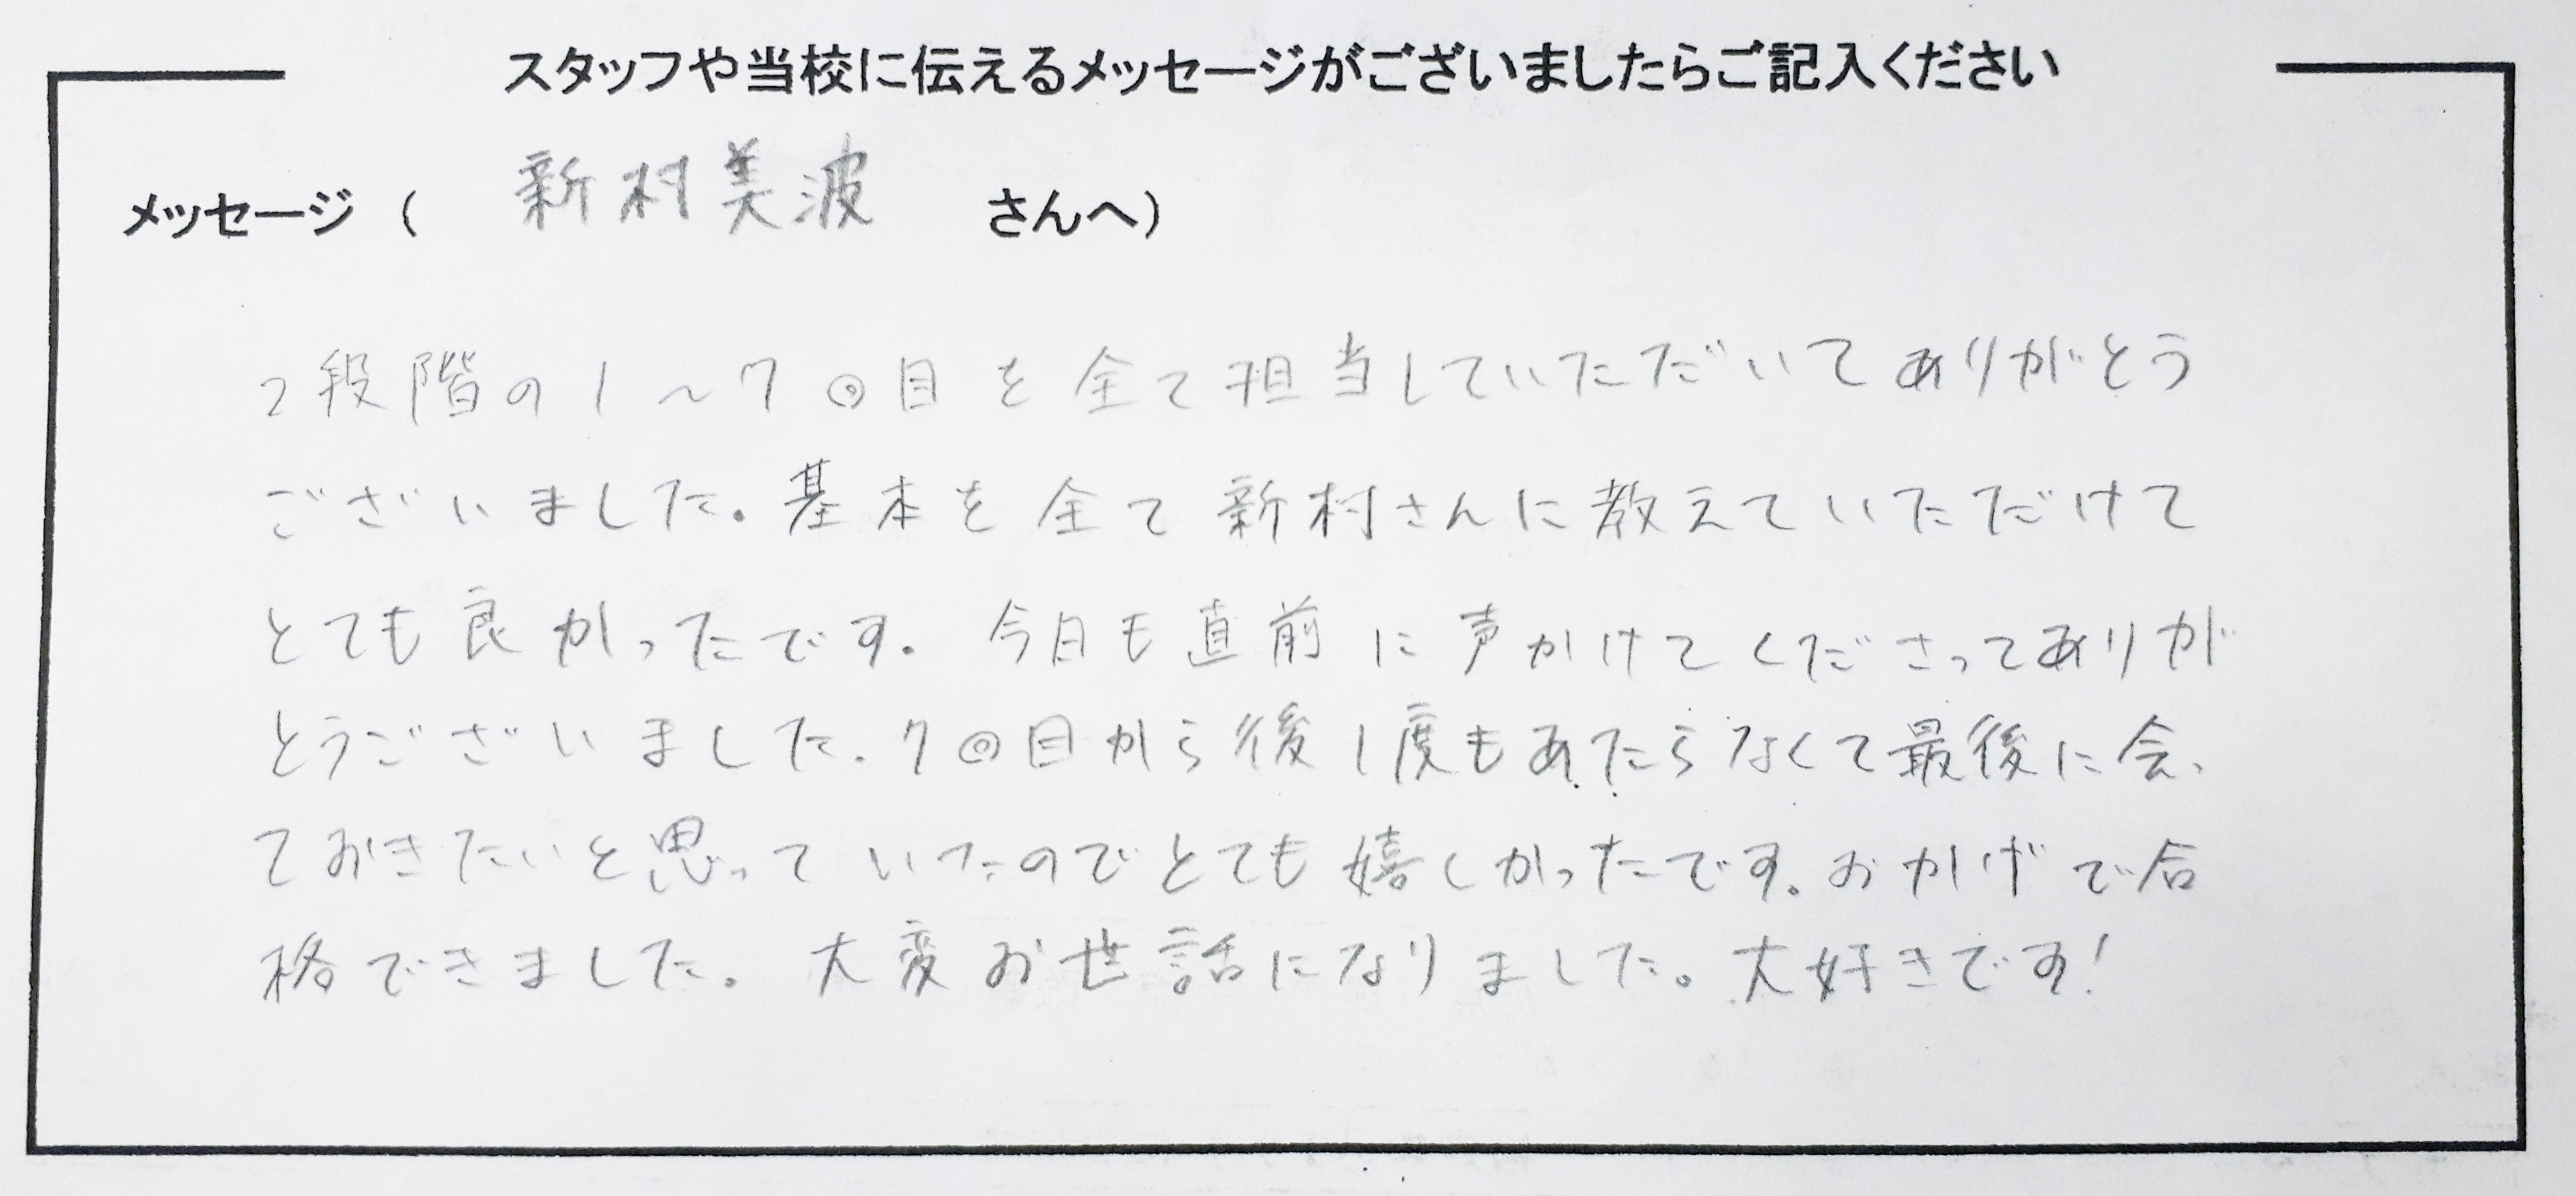 スタッフや当校に伝えるメッセージがございましたらご記入ください
メッセージ ( 新村美波 さんへ)
2段階の1〜7回目を全て担当していただいてありがとう
ございました。基本を全て新村さんに教えていただけて
とても良かったです。今日も直前に声かけてくださってありが
とうございました。7回目から後1度もあたらなくて最後に会っ
ておきたいと思っていたのでとても嬉しかったです。おかげで合
格できました。大変お世話になりました。大好きです!